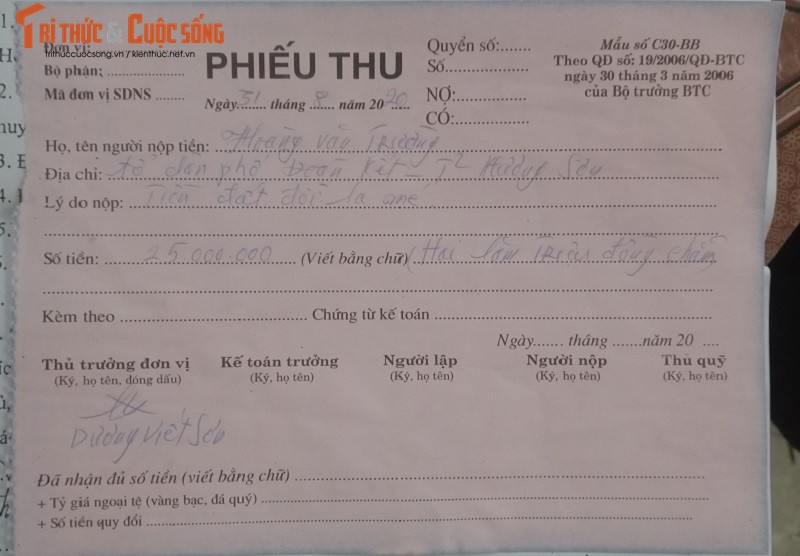 TRI THỨC & CUỘC SỐNG
trithuccuocsong.vn / kienthuc.net.vn
Đơn vị:
Bộ phận; ....................
Mã đơn vị SDNS ........
PHIẾU THU
Ngày 31 tháng 8 năm 2020
Quyển số:.......
Số...................
NỢ:................
CÓ:................
Mẫu số C30-BB
Theo QĐ số: 19/2006/QĐ-BTC
ngày 30 tháng 3 năm 2006
của Bộ trưởng BTC
Họ, tên người nộp tiền: Hoàng văn Trường
Địa chỉ: tổ dân phố Đoàn Kết - T² Hương Sơn
Lý do nộp: Tiền đất đồi
Số tiền: 25.000.000 (Viết bằng chữ) (Hai lăm triệu đồng chẵn
Kèm theo ........................ Chứng từ kế toán ........................
Ngày....... tháng .......năm 20 ....
Thủ trưởng đơn vị Kế toán trưởng Người lập Người nộp Thủ quỹ
(Ký, họ tên, đóng dấu) (Ký, họ tên) (Ký, họ tên) (Ký, họ tên) (Ký, họ tên)
Dương Viết Sơn
Đã nhận đủ số tiền (viết bằng chữ) ........................
+ Tỷ giá ngoại tệ (vàng bạc, đá quý) ........................
+ Số tiền quy đổi ........................